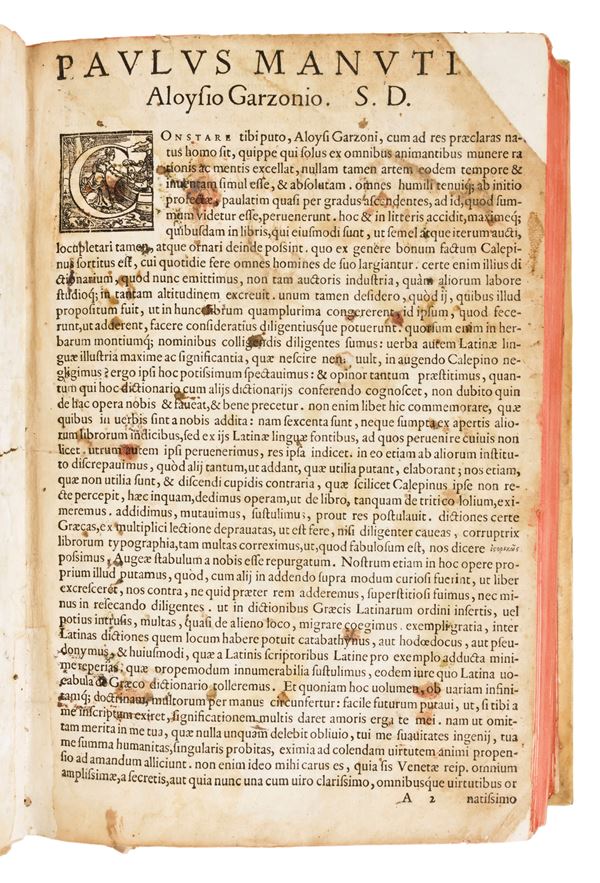 PAVLVS MANVTI
Aloysio Garzonio. S. D.
CONSTARE tibi puto, Aloysi Garzoni, cum ad res præclaras na-
tus homo sit, quippe qui solus ex omnibus animantibus munere ra
tionis ac mentis excellat, nullam tamen artem eodem tempore &
inuentam simul esse, & absolutam. omnes humili tenuiq; ab initio
profectæ, paulatim quasi per gradus ascendentes, ad id, quod sum-
mum videtur esse, peruenerunt. hoc & in litteris accidit, maximeq;
quibusdam in libris, qui eiusmodi sunt, ut semel atque iterum aucti,
locupletari tamen, atque ornari deinde possint. quo ex genere bonum factum Calepi-
nus sortitus est, cui quotidie fere omnes homines de suo largiantur. certe enim illius di
ctionarium, quod nunc emittimus, non tam auctoris industria, quàm aliorum labore
studioq; in tantam altitudinem excreuit. unum tamen desidero, quòd ij, quibus illud
propositum fuit, ut in hunc librum quamplurima congererent, id ipsum, quod fece-
runt, ut adderent, facere consideratius diligentiusque potuerunt. quorsum enim in her-
barum montiumq; nominibus colligendis diligentes sumus: uerba autem Latinæ lin-
guæ illustria maxime ac significantia, quæ nescire nemo uult, in augendo Calepino ne-
gligimus? ergo ipsi hoc potissimum spectauimus: & opinor tantum præstitimus, quan-
tum qui hoc dictionario cum alijs dictionarijs conferendo cognoscet, non dubito quin
de hac opera nobis & faueat, & bene precetur. non enim libet hic commemorare, quæ
quibus in uerbis sint a nobis addita: nam sexcenta sunt, neque sumpta ex apertis alio-
rum librorum indicibus, sed ex ijs Latinæ linguæ fontibus, ad quos peruenire cuiuis non
licet. utrum autem ipsi peruenerimus, res ipsa indicet. in eo etiam ab aliorum institu-
to discrepauimus, quòd alij tantum, ut addant, quæ utilia putant, elaborant; nos etiam,
quæ non utilia sunt, & discendi cupidis contraria, quæ scilicet Calepinus ipse non re-
cte percepit, hæc inquam, dedimus operam, ut de libro, tanquam de tritico lolium, exi-
meremus. addidimus, mutauimus, sustulimus, prout res postulauit. dictiones certe
Græcas, ex multiplici lectione deprauatas, ut est fere, nisi diligenter caueas, corruptrix
librorum typographia, tam multas correximus, ut, quod fabulosum est, nos dicere
possimus, Augeæ stabulum a nobis esse repurgatum. Nostrum etiam in hoc opere pro-
prium illud putamus, quòd, cum alij in addendo supra modum curiosi fuerint, ut liber
excresceret, nos contra, ne quid præter rem adderemus, superstitiosi fuimus, nec mi-
nus in resecando diligentes. ut in dictionibus Græcis Latinarum ordini insertis, uel
potius intrusis, multas, quasi de alieno loco, migrare coegimus. exempli gratia, inter
Latinas dictiones quem locum habere potuit catabathynus, aut hodœdocus, aut pseu-
donymus, & huiusmodi, quæ a Latinis scriptoribus Latine pro exemplo adducta mini-
me reperias, quæ propemodum innumerabilia sustulimus, eodem iure quo Latina uo-
cabula de Græco dictionario tolleremus. Et quoniam hoc uolumen, ob uariam infini-
tamq; doctrinam, multorum per manus circunfertur: facile futurum putaui, ut, si tibi a
me inscriptum exiret, significationem multis daret amoris erga te mei. nam ut omit-
tam merita in me tua, quæ nulla unquam delebit obliuio, tui me suauitates ingenij, tua
me summa humanitas, singularis probitas, eximia ad colendam uirtutem animi propen-
sio ad amandum alliciunt. non enim ideo mihi carus es, quia sis Venetæ reip. omnium
amplissimæ, a secretis, aut quia nunc una cum uiro clarissimo, omnibusque uirtutibus or
A 2 natissimo